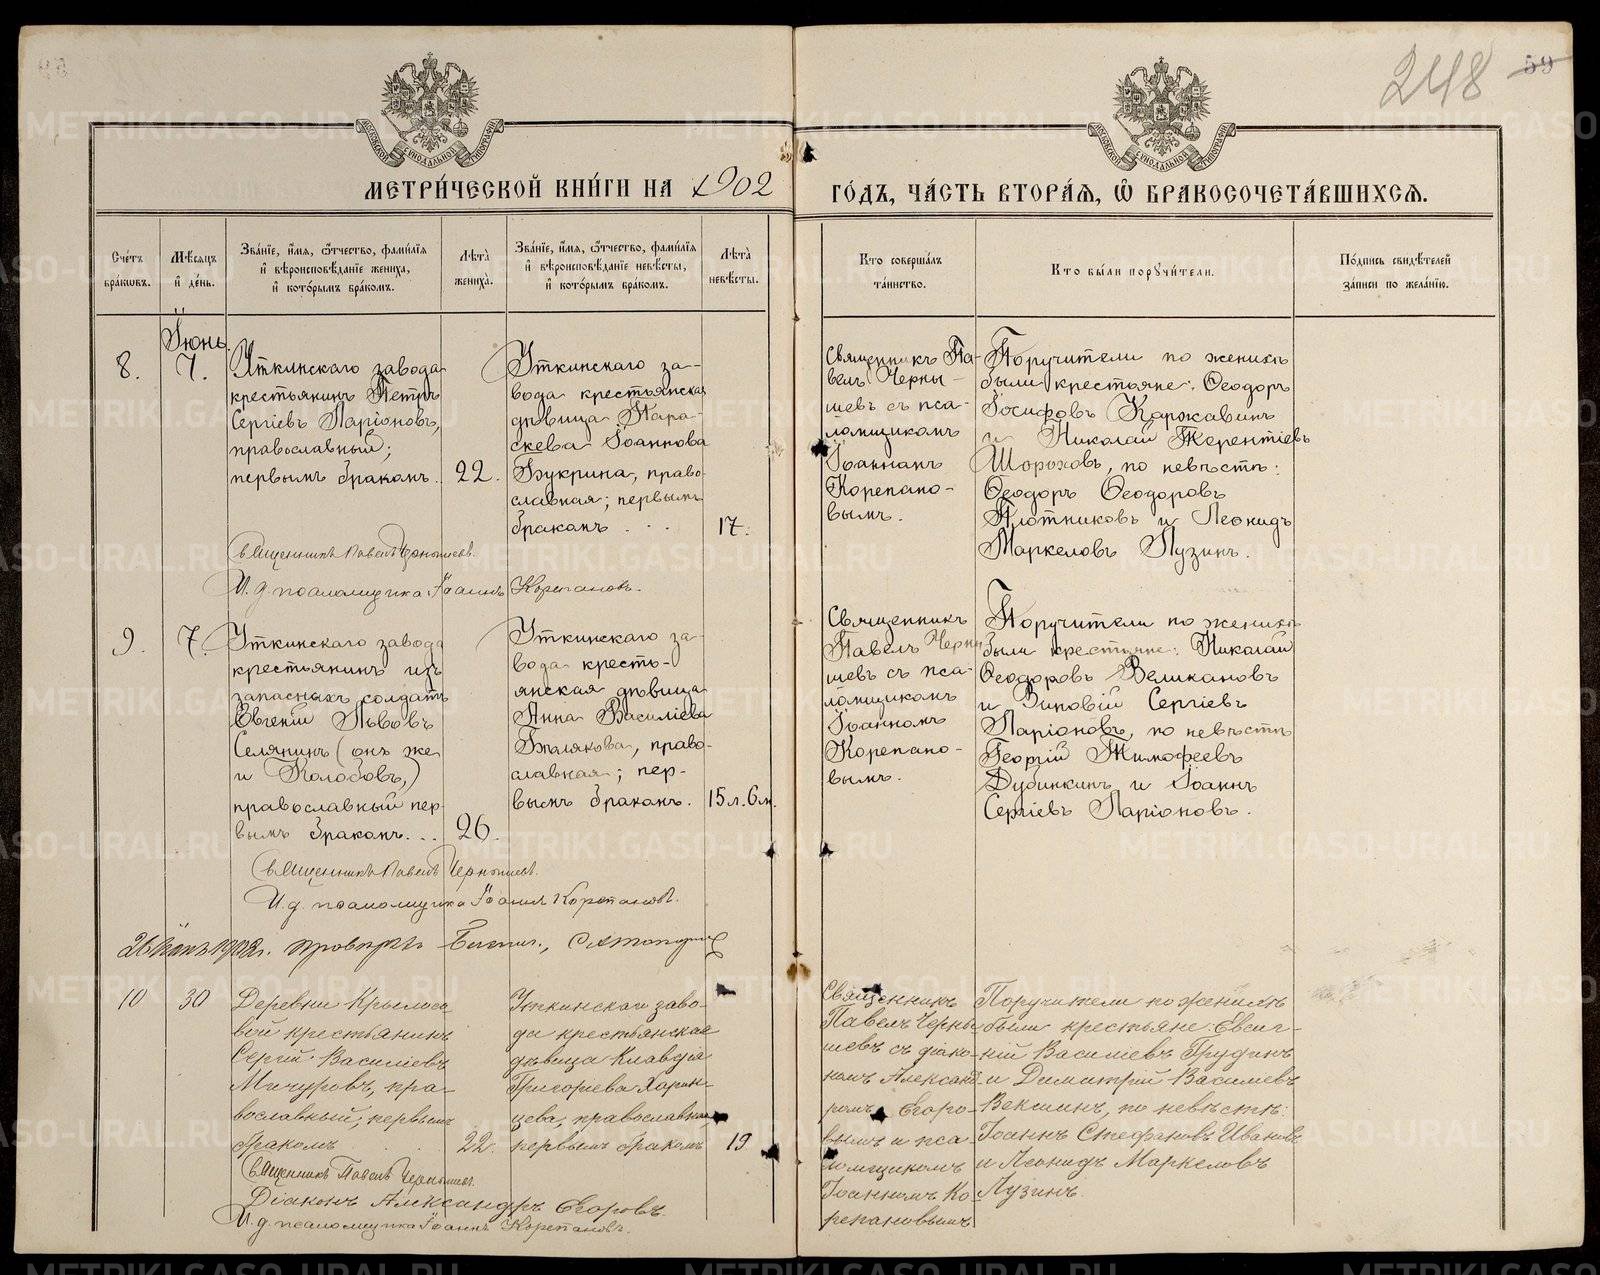 248
59
МОСКОВСКОЙ СѴНОДАЛЬНОЙ ТИПОГРАФІИ
МОСКОВСКОЙ СѴНОДАЛЬНОЙ ТИПОГРАФІИ
МЕТРИ́ЧЕСКОЙ КНИ́ГИ НА 1902
ГО́ДЪ, ЧА́СТЬ ВТОРА́Ѧ, Ѡ҆ БРАКОСОЧЕТА́ВШИХСѦ.
Сче́тъ
бра́кѡвъ.
Мѣ́сѧцъ
и҆ де́нь.
Зва́нїе, и҆́мѧ, ѻ҆́тчество, фами́лїѧ
и҆ вѣроисповѣ́данїе жениха̀,
и҆ кото́рымъ бра́комъ.
Лѣ́та̀
жениха̀.
Зва́нїе, и҆́мѧ, ѻ҆́тчество, фами́лїѧ
и҆ вѣроисповѣ́данїе невѣ́сты,
и҆ кото́рымъ бра́комъ.
Лѣ́та̀
невѣ́сты.
Кто̀ соверша́лъ
та́инство.
Кто̀ бы́ли порꙋчи́тели.
По́дпись свидѣ́телей
за́писи по жела́нїю.
Іюнь.
8.
7.
Уткинскаго завода
крестьянинъ Петръ
Сергіевъ Ларіоновъ,
православный;
первымъ бракомъ.
22.
Уткинскаго за-
вода крестьянская
дѣвица Пара-
скева Іоаннова
Букрина, право-
славная; первымъ
бракомъ . . .
17.
Священникъ Па-
велъ Черны-
шевъ съ пса-
ломщикомъ
Іоанномъ
Корепано-
вымъ.
Поручители по женихѣ
были крестьяне: Ѳеодоръ
Іосифовъ Каржавинъ
и Николай Терентіевъ
Шороховъ, по невѣстѣ:
Ѳеодоръ Ѳеодоровъ
Плотниковъ и Леонидъ
Маркеловъ Лузинъ.
Священникъ Павелъ Чернышевъ.
И. д. псаломщика Іоаннъ Корепановъ.
9.
7.
Уткинскаго завода
крестьянинъ изъ
запасныхъ солдатъ
Евгеній Львовъ
Селянинъ (онъ же
и Колобовъ,)
православный пер-
вымъ бракомъ...
26.
Уткинскаго за-
вода кресть-
янская дѣвица
Анна Василіева
Бѣлякова, право-
славная; пер-
вымъ бракомъ.
15 л. 6 м.
Священникъ
Павелъ Черны
шевъ съ пса-
ломщикомъ
Іоанномъ
Корепано-
вымъ.
Поручители по женихѣ
были крестьяне: Николай
Ѳеодоровъ Великановъ
и Зиновій Сергіевъ
Ларіоновъ, по невѣстѣ
Георгій Тимофеевъ
Дубинкинъ и Іоаннъ
Сергіевъ Ларіоновъ.
Священникъ Павелъ Чернышевъ.
И. д. псаломщика Іоаннъ Корепановъ.
26 Іюнь 1902 г.
10
30
Деревни Крылосо
вой крестьянинъ
Сергій Василіевъ
Мичуровъ, пра-
вославный, первымъ
бракомъ
22.
Уткинскаго заво-
да крестьянская
дѣвица Клавдія
Григорьева Харин-
цева, православная,
первымъ бракомъ
19
Священникъ
Павелъ Черны
шевъ съ діако-
номъ Александ
ромъ Егоро-
вымъ и пса-
ломщикомъ
Іоанномъ Ко-
репановымъ
Поручители по женихѣ
были крестьяне: Евсиг-
ній Василіевъ Грудинъ
и Димитрій Василіевъ
Векшинъ, по невѣстѣ:
Іоаннъ Стефановъ Ивановъ
и Леонидъ Маркеловъ
Лузинъ.
Священникъ Павелъ Чернышевъ.
Діаконъ Александръ Егоровъ.
И. д. псаломщика Іоаннъ Корепановъ.